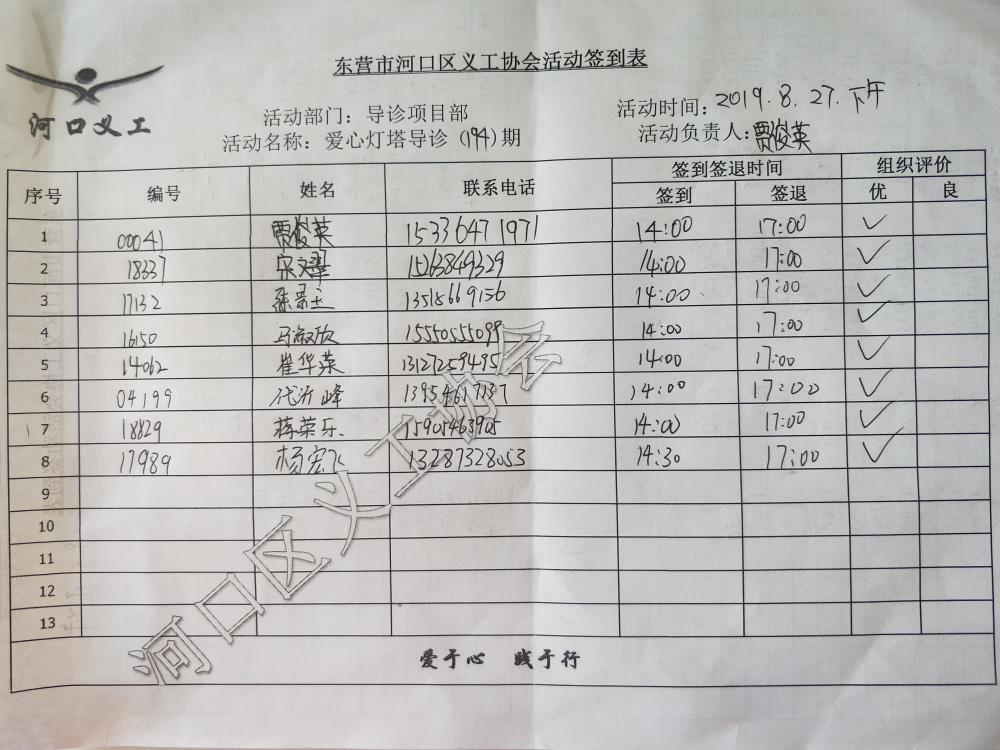 东营市河口区义工协会活动签到表
河口义工
活动部门：导诊项目部
活动时间：2019.8.27.下午
活动名称：爱心灯塔导诊（194）期
活动负责人：贾俊英
序号 编号 姓名 联系电话 签到签退时间 组织评价
签到 签退 优 良
1 00041 贾俊英 15336471971 14:00 17:00 ✓
2 18337 15263849329 14:00 17:00 ✓
3 17132 13518669156 14:00 17:00 ✓
4 16150 马淑欣 15550555099 14:00 17:00 ✓
5 14062 崔华荣 13127259495 14:00 17:00 ✓
6 04199 代沂峰 13954617137 14:00 17:00 ✓
7 18829 15905463905 14:00 17:00 ✓
8 17989 杨宏飞 13287328053 14:30 17:00 ✓
9
10
11
12
13
爱于心 践于行
河口区义工协会